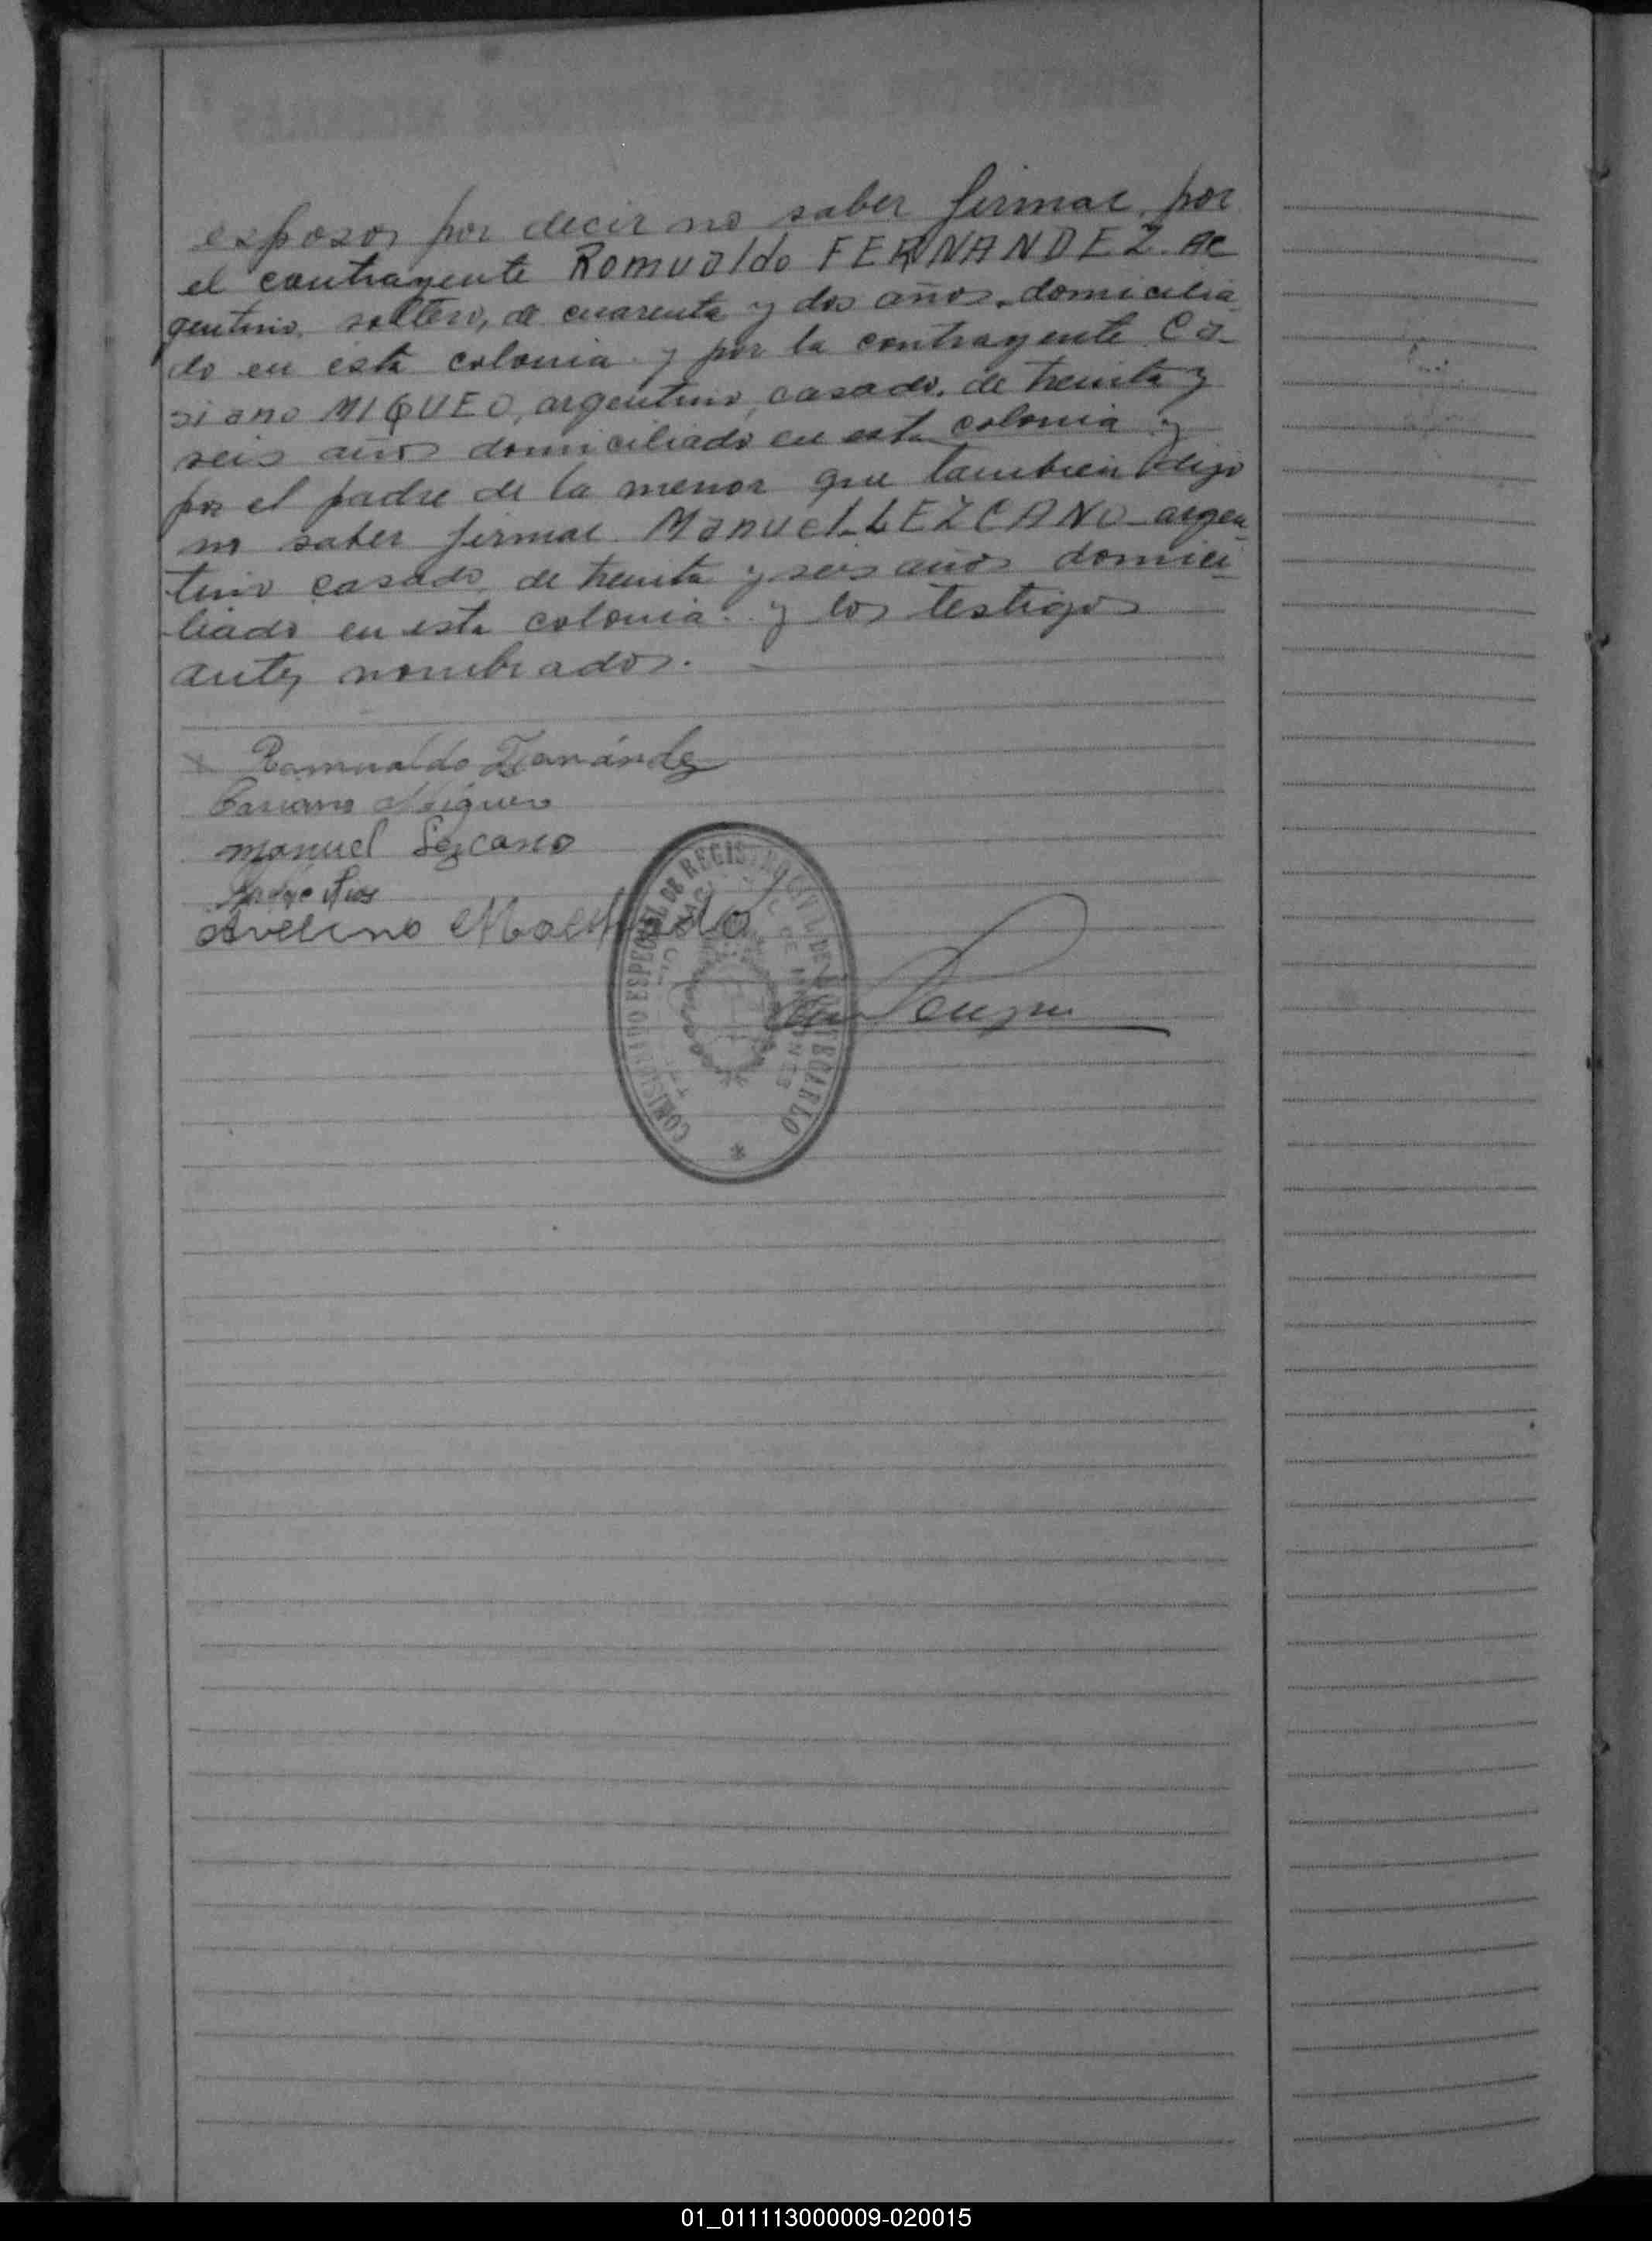 esposos por decir no saber firmar, por
el contrayente Romualdo FERNANDEZ. Ar
gentino, soltero, de cuarenta y dos años, domicilia
do en esta colonia y por la contrayente Ca-
siano MIQUEO, argentino, casado, de treinta y
seis años domiciliado en esta colonia y
por el padre de la menor que tambien dijo
no saber firmar Manuel LEZCANO argen
tino casado, de treinta y seis años domici
liado en esta colonia. y los testigos
antes nombrados.
Romualdo Fernández
Casiano Miqueo
Manuel Lezcano
Avelino Machado
COMISIONADO ESPECIAL DE REGISTRO CIVIL DE
DE MISIONES
01_011113000009-020015